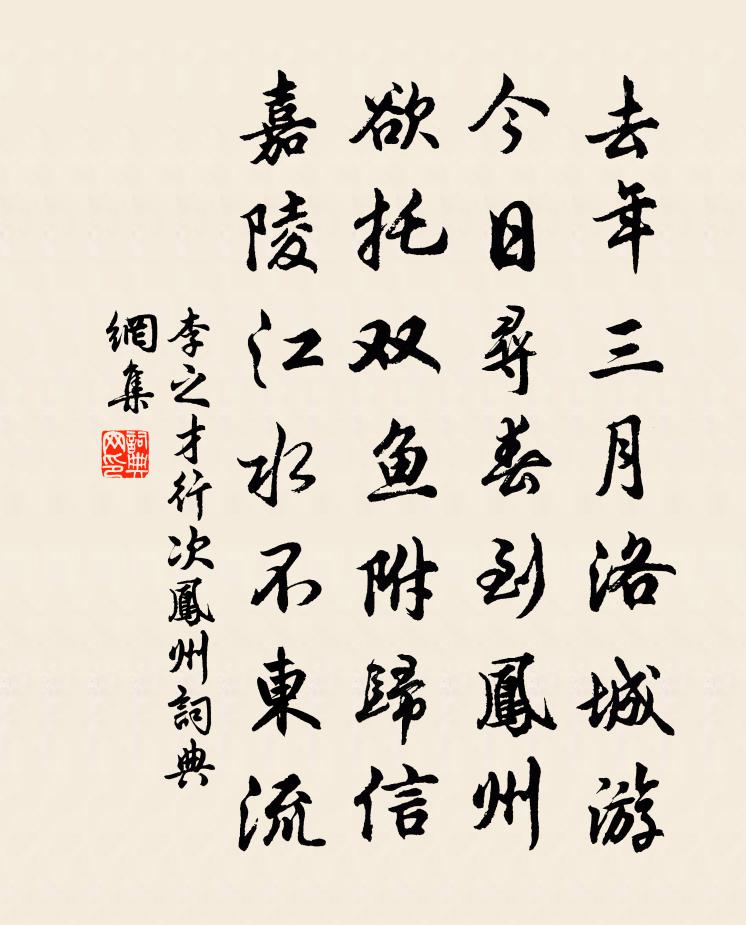 去年三月洛城游
今日尋春到鳳州
欲托双鱼附歸信
嘉陵江水不東流
李之才行次鳳州詞典
網集
詞典
网印